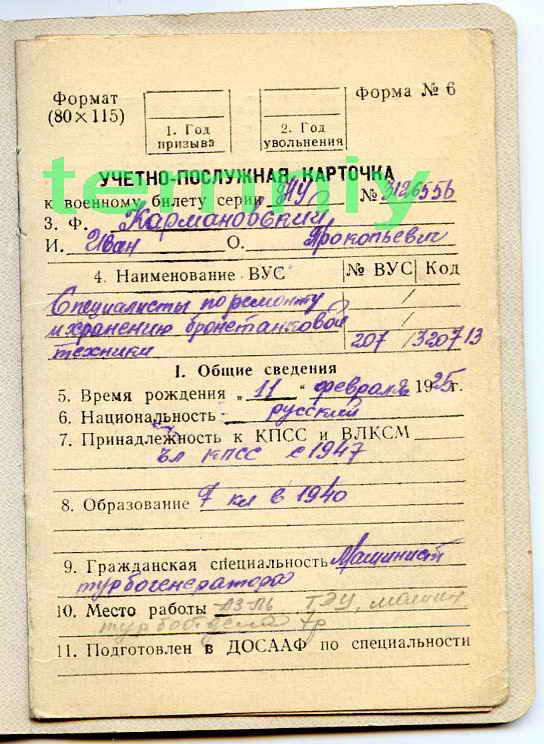 Формат
(80×115)
Форма № 6
1. Год
призыва
2. Год
увольнения
УЧЕТНО-ПОСЛУЖНАЯ КАРТОЧКА
к военному билету серии НУ № 3126556
3. Ф. Кармановский
И. Иван О. Прокопьевич
4. Наименование ВУС № ВУС Код
Специалисты по ремонту /
и хранению бронетанковой /
техники 207 /320713
I. Общие сведения
5. Время рождения „ 11 “ февраля 1925г.
6. Национальность русский
7. Принадлежность к КПСС и ВЛКСМ
чл КПСС с 1947
8. Образование 7 кл в 1940
9. Гражданская специальность Машинист
турбогенератора
10. Место работы ТЭЦ, машин
11. Подготовлен в ДОСААФ по специальности